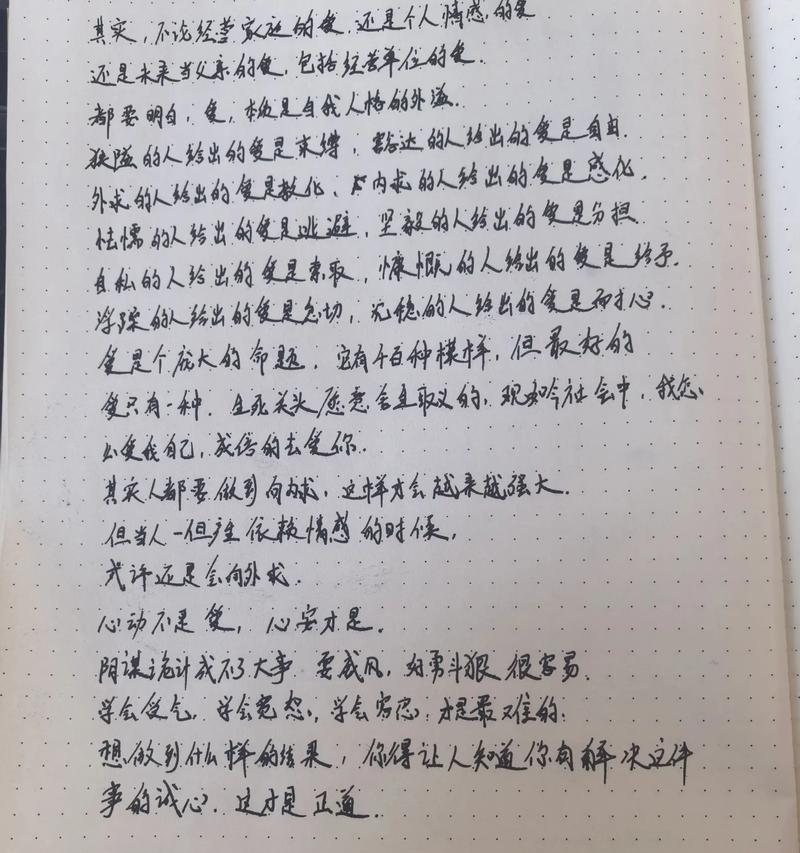 其实，不论经营家庭的爱，还是个人情感的爱
还是未来当父亲的爱，包括经营单位的爱.
都要明白，爱，本质是自我人格的外溢.
狭隘的人给出的爱是束缚，豁达的人给出的爱是自由.
外求的人给出的爱是教化，内求的人给出的爱是感化.
怯懦的人给出的爱是逃避，坚毅的人给出的爱是分担.
自私的人给出的爱是索取，慷慨的人给出的爱是给予.
浮躁的人给出的爱是急切，沉稳的人给出的爱是耐心.
爱是个庞大的命题，它有千百种模样，但最好的
爱只有一种.生死关头愿意舍生取义的，现如今社会中，我怎
么爱我自己，成倍的去爱你.
其实人都要做到向内求，这样才会越来越强大.
但当人一但产生依赖情感的时候，
或许还是会向外求.
心动不是爱，心安才是.
阴谋诡计成不了大事 耍威风，好勇斗狠 很容易.
学会受气，学会宽恕，学会容忍，才是最难的.
想做到什么样的结果，你得让人知道你有解决这件
事的诚心.这才是正道.